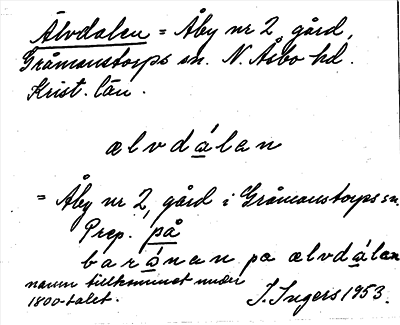 Älvdalen = Åby nr 2, gård,
Gråmanstorps sn. N. Åsbo hd.
Krist. län.
ælvdálan
= Åby nr 2, gård i Gråmanstorps sn.
Prep. på
baránan pa ælvdálan
namn tillkommet under
1800-talet.
I. Ingers 1953.